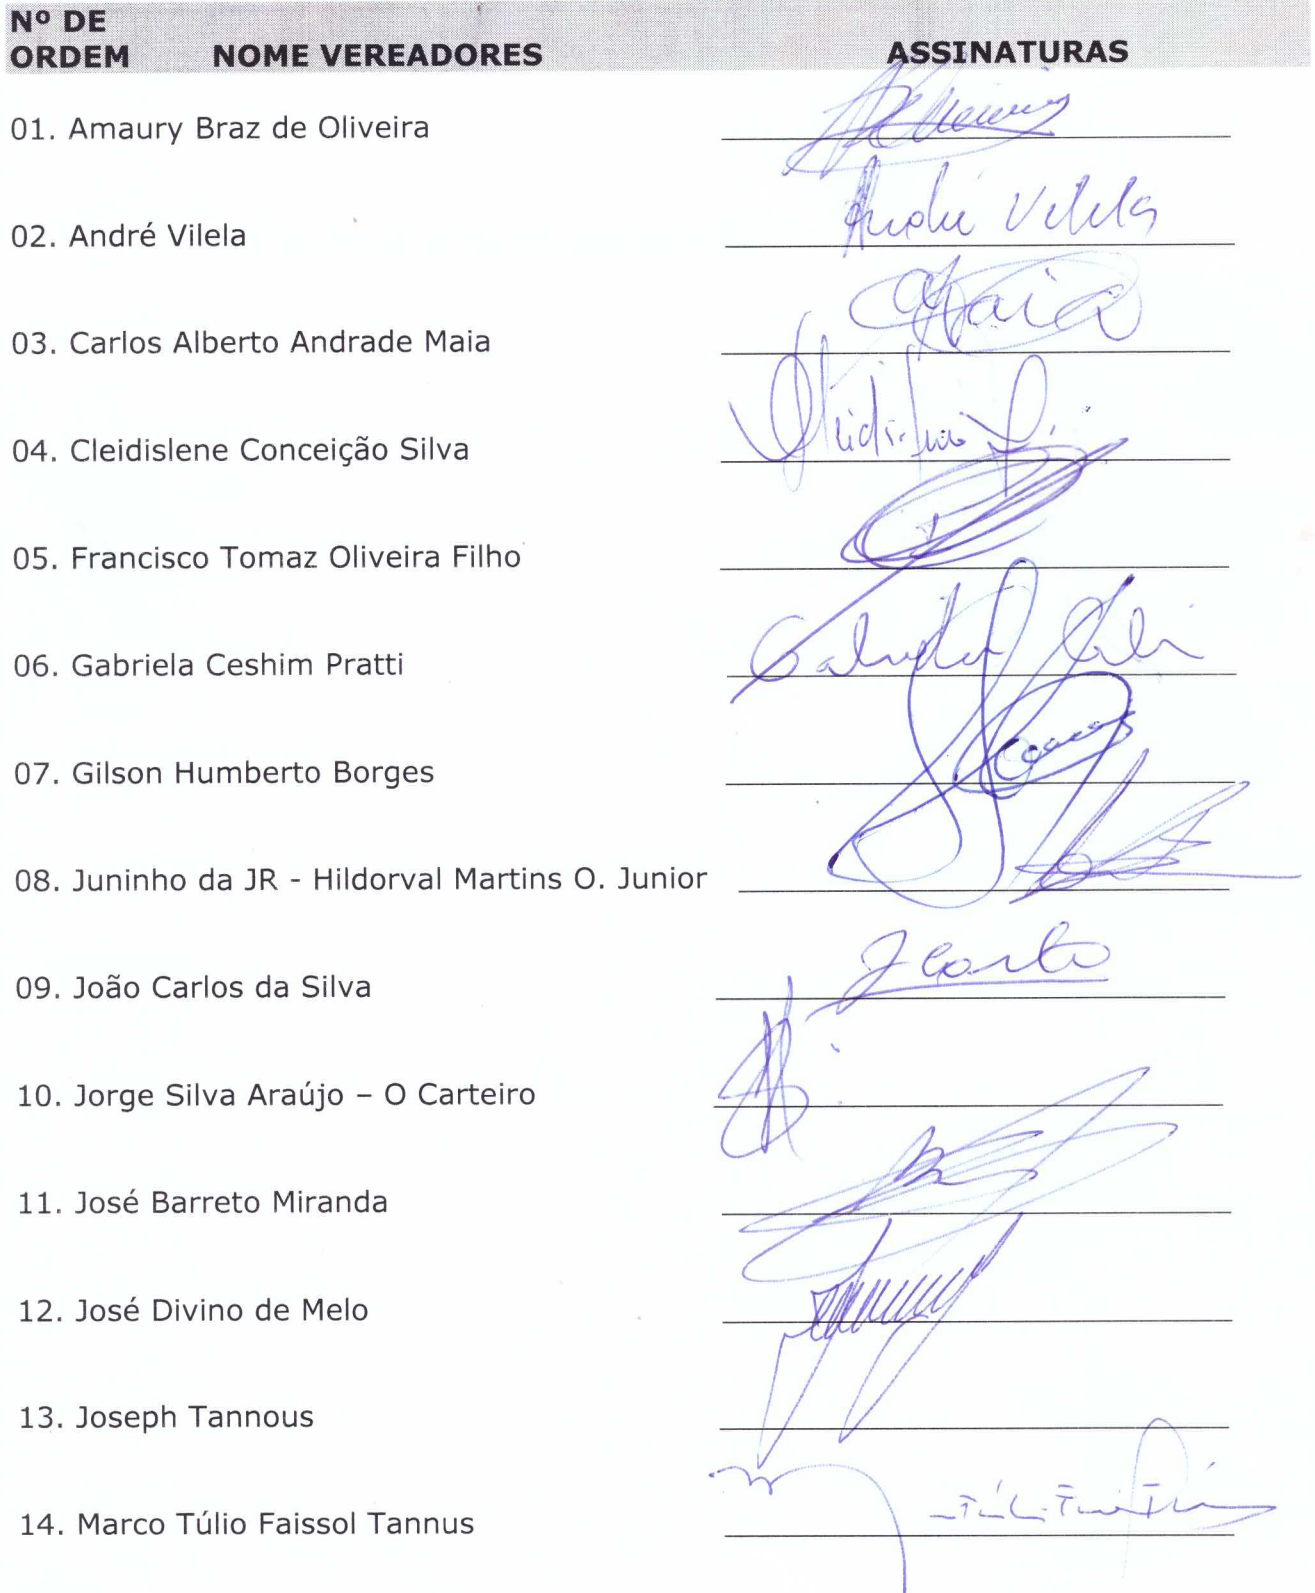 Nº DE
ORDEM NOME VEREADORES ASSINATURAS
01. Amaury Braz de Oliveira
02. André Vilela André Vilela
03. Carlos Alberto Andrade Maia Maia
04. Cleidislene Conceição Silva
05. Francisco Tomaz Oliveira Filho
06. Gabriela Ceshim Pratti
07. Gilson Humberto Borges
08. Juninho da JR - Hildorval Martins O. Junior
09. João Carlos da Silva
10. Jorge Silva Araújo – O Carteiro
11. José Barreto Miranda
12. José Divino de Melo
13. Joseph Tannous
14. Marco Túlio Faissol Tannus